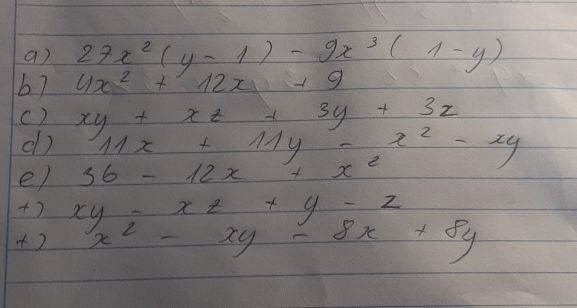 a) 27x²(y - 1) - 9x³(1 - y)
b) 4x² + 12x + 9
c) xy + xz + 3y + 3z
d) 11x + 11y - x² - xy
e) 36 - 12x + x²
f) xy - xz + y - z
f) x² - xy - 8x + 8y